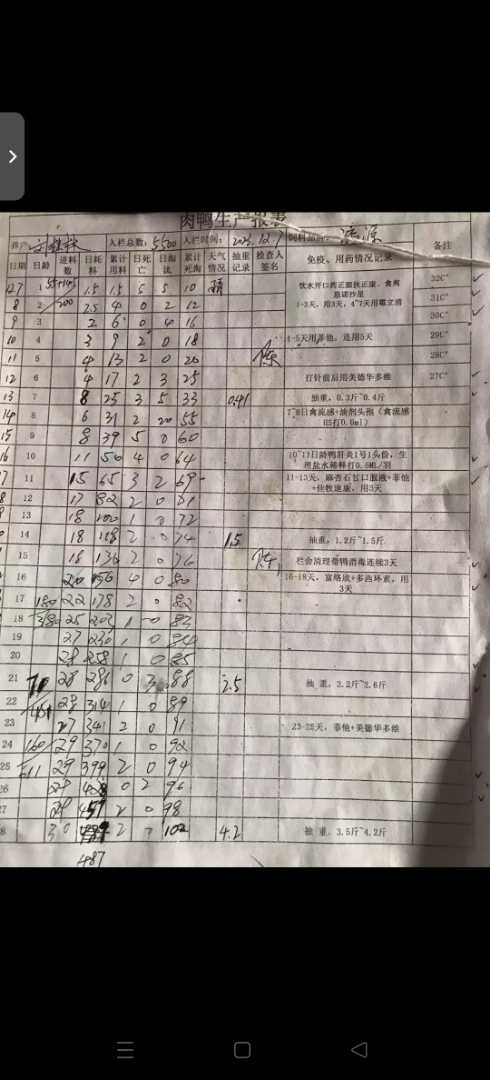 肉鸭生产报表
养户 入栏总数: 5500 入栏时间: 2025.12.7 饲料品牌:
日期 日龄 进料数 日耗料 累计用料 日死亡 日淘汰 累计死淘 天气情况 抽重记录 检查人签名 免疫、用药情况记录 备注
12.7 1 55+145 1.5 1.5 5 5 10 晴 32C°
饮水开口药正腹抗正康、禽两
恩诺沙星
1-3天, 用3天, 4~7天用霉立清
8 2 200 2.5 4 0 2 12 31C°
9 3 2 6 0 4 16 30C°
10 4 3 9 2 0 18 4-5天用菲他, 连用5天 29C°
11 5 4 13 2 0 20 28C°
12 6 4 17 2 3 25 打针前后用美德华多维 27C°
13 7 8 25 3 5 33 0.41 抽重, 0.3斤~0.4斤
14 8 6 31 2 20 55 7~8日禽流感+油剂头孢 (禽流感
H5打0.6ml)
15 9 8 39 5 0 60
16 10 11 50 4 0 64 10~13日龄鸭肝炎1号1头份, 生
理盐水稀释打0.5ML/羽
17 11 15 65 3 2 69 11-13天, 麻杏石甘口服液+菲他
+佳牧速康, 用3天
12 17 82 2 0 71
13 18 100 1 0 72
14 18 118 2 0 74 1.5 抽重, 1.2斤~1.5斤
15 18 136 2 0 76 栏舍清理带鸭消毒连续3天
16 20 156 4 0 80 16-18天, 富络欣+多西环素, 用
3天
17 180 22 178 2 0 82
18 380 25 203 1 0 83
19 27 230 1 0 84
20 28 258 1 0 85
21 28 286 0 3 88 2.5 抽 重, 2.2斤~2.6斤
22 28 314 1 0 89
23 27 341 2 0 91 23-25天, 菲他+美德华多维
24 160 29 370 1 0 92
25 611 29 399 2 0 94
26 29 428 0 2 96
27 29 457 2 0 98
28 30 2 2 102 4.2 抽 重, 3.5斤~4.2斤
487